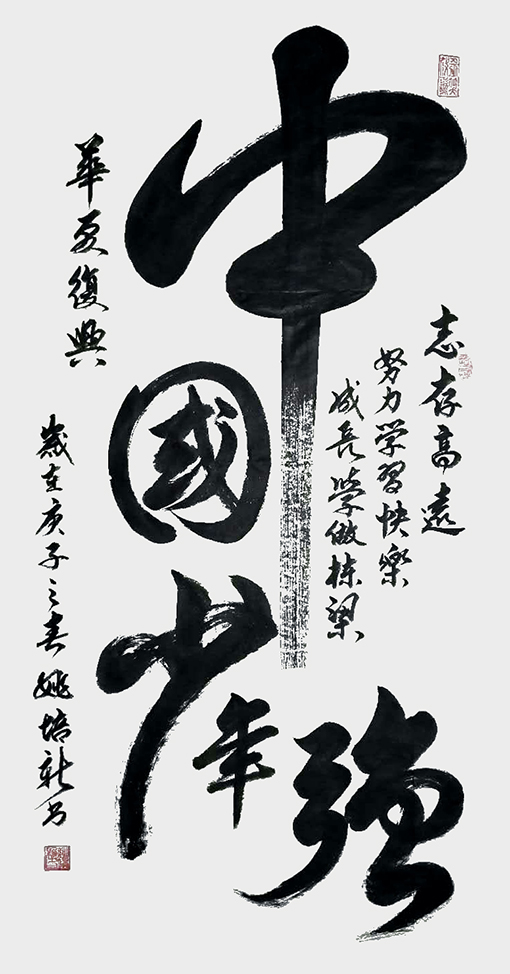 中國少年強
志存高遠
努力学習快樂
成長學做栋梁
華夏復興
歲在庚子之春姚培新书